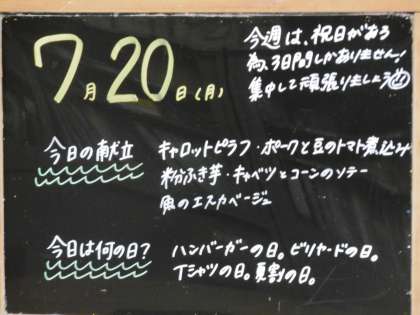 7月20日(月)
今週は、祝日がある
為、3日間しかありません!
集中して頑張りましょう
今日の献立
キャロットピラフ・ポークと豆のトマト煮込み
粉ふき芋・キャベツとコーンのソテー
魚のエスカベージュ
今日は何の日?
ハンバーガーの日。ビリヤードの日。
Tシャツの日。夏割の日。